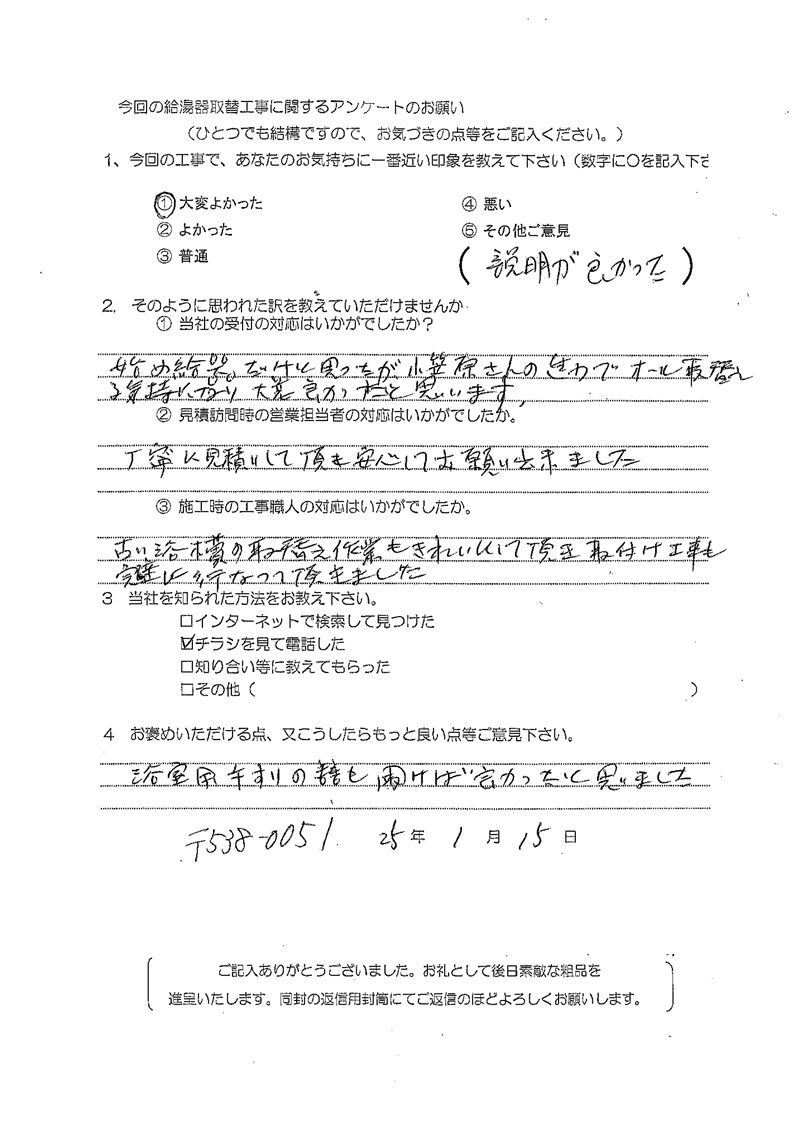 今回の給湯器取替工事に関するアンケートのお願い
(ひとつでも結構ですので、お気づきの点等をご記入ください。)
1、今回の工事で、あなたのお気持ちに一番近い印象を教えて下さい(数字に〇を記入下さ
① 大変よかった ④ 悪い
② よかった ⑤ その他ご意見
③ 普通
(説明が良かった)
2. そのように思われた訳を教えていただけませんか
① 当社の受付の対応はいかがでしたか?
始め給器だけと思ったが小笠原さんの でオール取替え
る気持になり大変良かったと思います,
② 見積訪問時の営業担当者の対応はいかがでしたか。
丁寧に見積いして頂き安心してお願い出来ました
③ 施工時の工事職人の対応はいかがでしたか。
古い浴槽の取替え作業もきれいにして頂き取付け工事も
完璧に行なって頂きました
3 当社を知られた方法をお教え下さい。
□インターネットで検索して見つけた
☑チラシを見て電話した
□知り合い等に教えてもらった
□その他( )
4 お褒めいただける点、又こうしたらもっと良い点等ご意見下さい。
浴室用手すりの 聞けば良かったと思いました
〒538-0051. 25年 1月 15日
ご記入ありがとうございました。お礼として後日素敵な粗品を
進呈いたします。同封の返信用封筒にてご返信のほどよろしくお願いします。